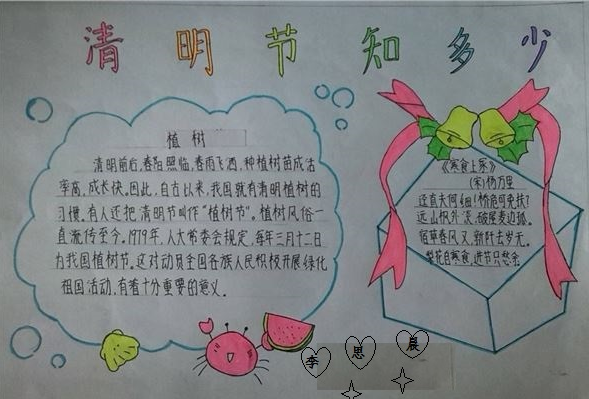 清明节知多少
植树
清明前后，春阳照临，春雨飞洒，种植树苗成活
率高，成长快。因此，自古以来，我国就有清明植树的
习惯。有人还把清明节叫作“植树节”。植树风俗一
直流传至今。1979年，人大常委会规定，每年三月十二日
为我国植树节。这对动员全国各族人民积极开展绿化
祖国活动，有着十分重要的意义。
《寒食上冢》
（宋）杨万里
迳直夫何细！桥危可免扶？
远山枫外淡，破屋麦边孤。
宿草春风又，新阡去岁无。
梨花自寒食，进节只愁余
李思晨